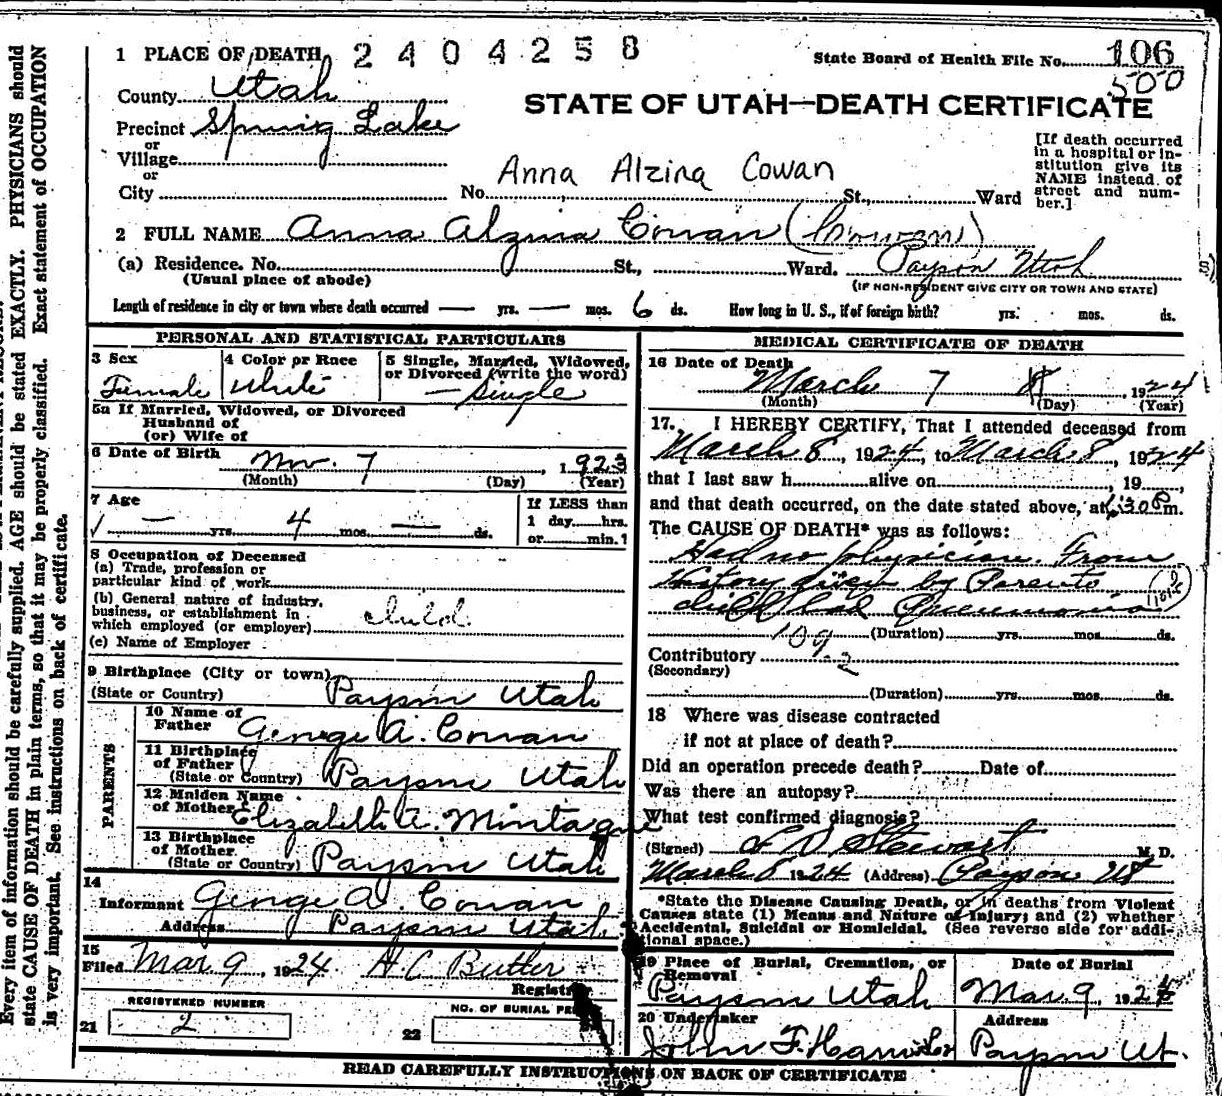 1 PLACE OF DEATH 2404258 State Board of Health File No. 106
500
County Utah
STATE OF UTAH—DEATH CERTIFICATE
Precinct Spring Lake
or
Village
or
City No. Anna Alzina Cowan St., Ward
[If death occurred
in a hospital or in-
stitution give its
NAME instead of
street and num-
ber.]
2 FULL NAME Anna Alzina Cowan (Cowan)
(a) Residence. No. St., Ward. Payson Utah
(Usual place of abode) (IF NON-RESIDENT GIVE CITY OR TOWN AND STATE)
Length of residence in city or town where death occurred — yrs. — mos. 6 ds. How long in U. S., if of foreign birth? yrs. mos. ds.
PERSONAL AND STATISTICAL PARTICULARS
3 Sex
Female
4 Color or Race
White
5 Single, Married, Widowed,
or Divorced (write the word)
— Single
5a If Married, Widowed, or Divorced
Husband of
(or) Wife of
6 Date of Birth
Nov. 7, 1923
(Month) (Day) (Year)
7 Age
— yrs. 4 mos. — ds.
If LESS than
1 day hrs.
or min.?
8 Occupation of Deceased
(a) Trade, profession or
particular kind of work
(b) General nature of industry,
business, or establishment in
which employed (or employer) child
(c) Name of Employer
9 Birthplace (City or town)
(State or Country) Payson Utah
PARENTS
10 Name of
Father George A. Cowan
11 Birthplace
of Father
(State or Country) Payson Utah
12 Maiden Name
of Mother Elizabeth A. Montague
13 Birthplace
of Mother
(State or Country) Payson Utah
14
Informant George A. Cowan
Address Payson Utah
15
Filed Mar 9, 1924 H C Butler
Registrar
REGISTERED NUMBER
21 2
NO. OF BURIAL PE
22
MEDICAL CERTIFICATE OF DEATH
16 Date of Death
March 7 8, 1924
(Month) (Day) (Year)
17. I HEREBY CERTIFY, That I attended deceased from
March 8, 1924, to March 8, 1924
that I last saw h alive on , 19 ,
and that death occurred, on the date stated above, at 6:30 P m.
The CAUSE OF DEATH* was as follows:
Had no physician. From
History given by Parents
child had Pneumonia
(Duration) yrs. mos. ds.
109.2
Contributory
(Secondary)
(Duration) yrs. mos. ds.
18 Where was disease contracted
if not at place of death?
Did an operation precede death? Date of
Was there an autopsy?
What test confirmed diagnosis?
(Signed) L D Stewart M. D.
March 8 1924 (Address) Payson Ut
*State the Disease Causing Death, or in deaths from Violent
Causes state (1) Means and Nature of Injury; and (2) whether
Accidental, Suicidal or Homicidal. (See reverse side for addi-
tional space.)
19 Place of Burial, Cremation, or
Removal
Payson Utah
Date of Burial
Mar 9, 1924
20 Undertaker
John F.
Address
Payson Ut.
READ CAREFULLY INSTRUCTIONS ON BACK OF CERTIFICATE
Every item of information should be carefully supplied. AGE should be stated EXACTLY. PHYSICIANS should
state CAUSE OF DEATH in plain terms, so that it may be properly classified. Exact statement of OCCUPATION
is very important. See instructions on back of certificate.